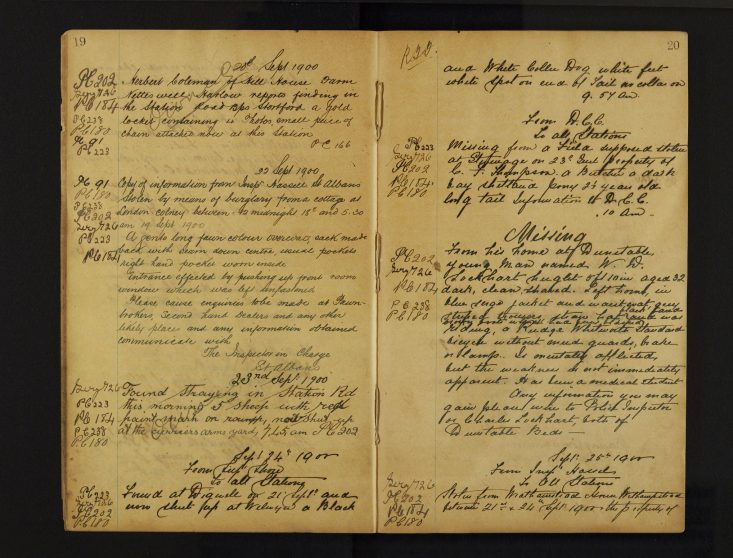 19
20th Sept 1900
Herbert Coleman of Hill House Farm
Nettleswell, Harlow reports finding in
the Station Road B/ps Stortford a gold
locket containing 2 Photos, small piece of
chain attached now at this Station
PC 166
PC 202
Serg 726
PC 184
PC 238
PC 180
PC 91
PC 223
22 Sept 1900
Copy of information from Insp Hassell St Albans
Stolen by means of burglary from a cottage at
London Colney between midnight 18th and 5.30
am 19 Sept 1900
A gents long fawn colour overcoat, sack made
back with seam down centre, usual pockets
right hand pocket worn inside
Entrance effected by pushing up front room
window which was left unfastened
Please cause enquiries to be made at Pawn-
brokers, Second hand dealers and any other
likely place and any information obtained
communicate with
The Inspector in Charge
St Albans
PC 91
PC 180
PC 238
PC 202
Serg 726
PC 223
PC 184
23rd Sept 1900
Found straying in Station Rd
this morning 5 sheep with red
paint mark on rump, now shut up
at the curriers arms yard, 7.45 am PC 202
Serg 726
PC 223
PC 184
PC 238
PC 180
Sept 24th 1900
From Supt
To all Stations
Found at Digswell on 21 Sept and
now shut up at Welwyn a Black
PC 223
Serg 726
PC 202
PC 180
20
and White Collie Dog, white feet
white spot on end of tail no collar on
9.57 am
From D.C.C.
To all Stations
Missing from a field supposed stolen
at Stevenage on 23rd Inst property of
C. F. Thompson a Butcher a dark
bay shetland pony 2½ years old
long tail Information to D.C.C.
10 am
PC 223
Serg 726
PC 202
PC 184
PC 180
Missing
From his home at Dunstable
young man named W. D.
Lockhart height 5ft 10in aged 32
dark, clean shaved. Left home in
blue serge jacket and waistcoat grey
striped trousers, straw hat black band
and was
riding a Rudge Whitworth Standard
bicycle without mud guards, brake
or lamp. Is mentally afflicted,
but the weakness is not immediately
apparent. Has been a medical student
Any information you may
gain please wire to Police Inspector
or Charles Lockhart,
Dunstable Beds
PC 202
Serg 726
PC 184
PC 238
PC 180
Sept 25th 1900
From Insp
To All Stations
Stolen from
between 21st & 24 Sept 1900 the property of
Serg 726
PC 202
PC 184
PC 180